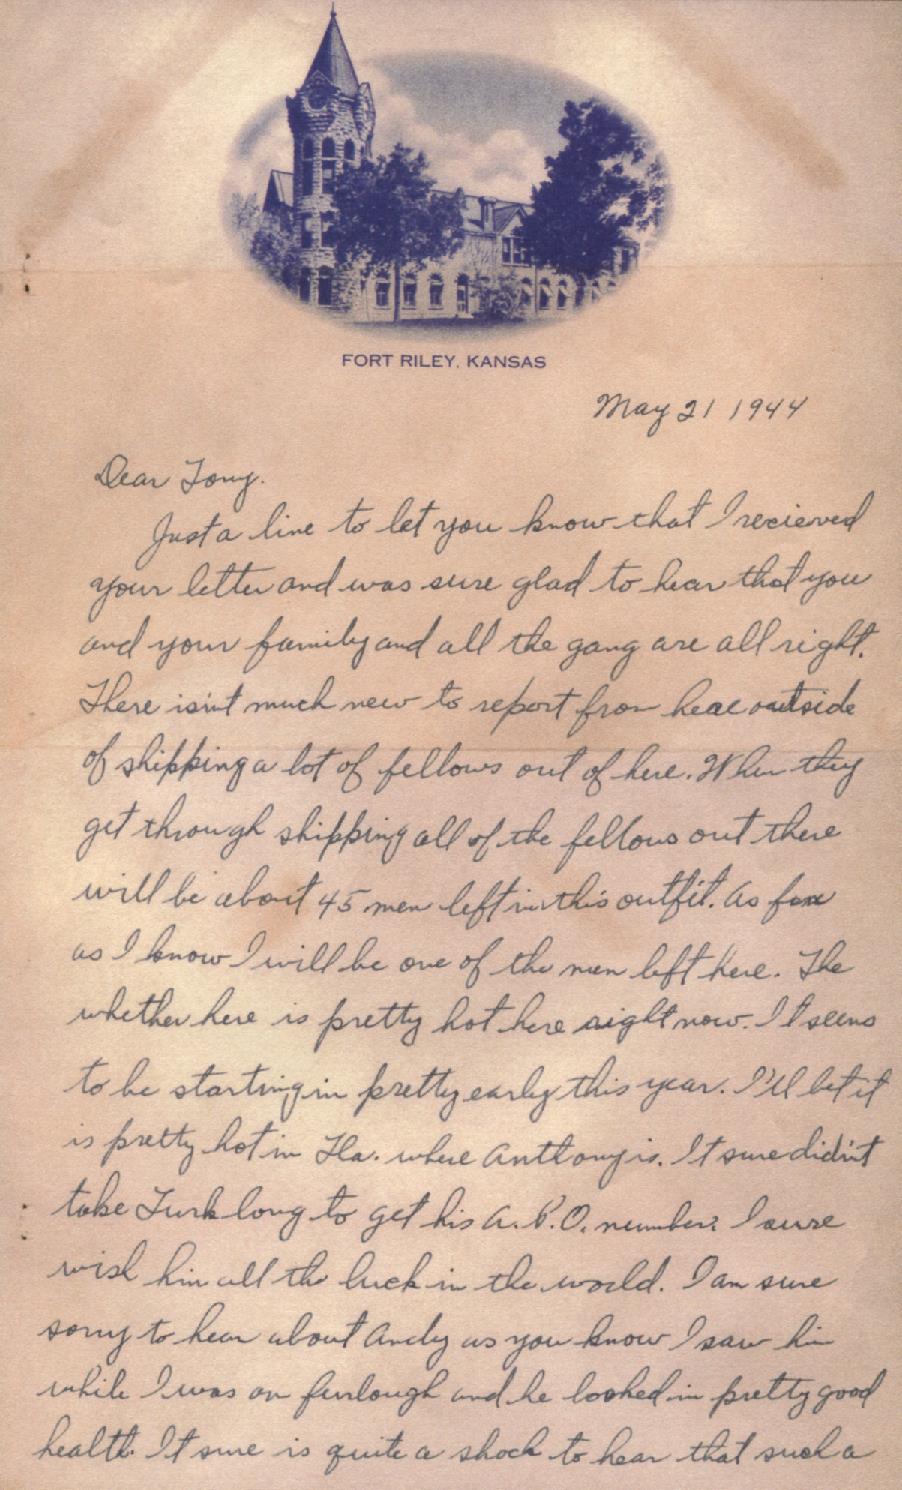 FORT RILEY, KANSAS
May 21 1944
Dear Tony.
Just a line to let you know that I recieved
your letter and was sure glad to hear that you
and your family and all the gang are all right.
There is'nt much new to report from here outside
of shipping a lot of fellows out of here. When they
get through shipping all of the fellows out there
will be about 45 men left in this outfit. As far
as I know I will be one of the men left here. The
whether here is pretty hot here right now. It seems
to be starting in pretty early this year. I'll bet it
is pretty hot in Fla. where Anthony is. It sure did'nt
take Turk long to get his A.P.O. number. I sure
wish him all the luck in the world. I am sure
sorry to hear about Andy as you know I saw him
while I was on furlough and he looked in pretty good
health. It sure is quite a shock to hear that such a